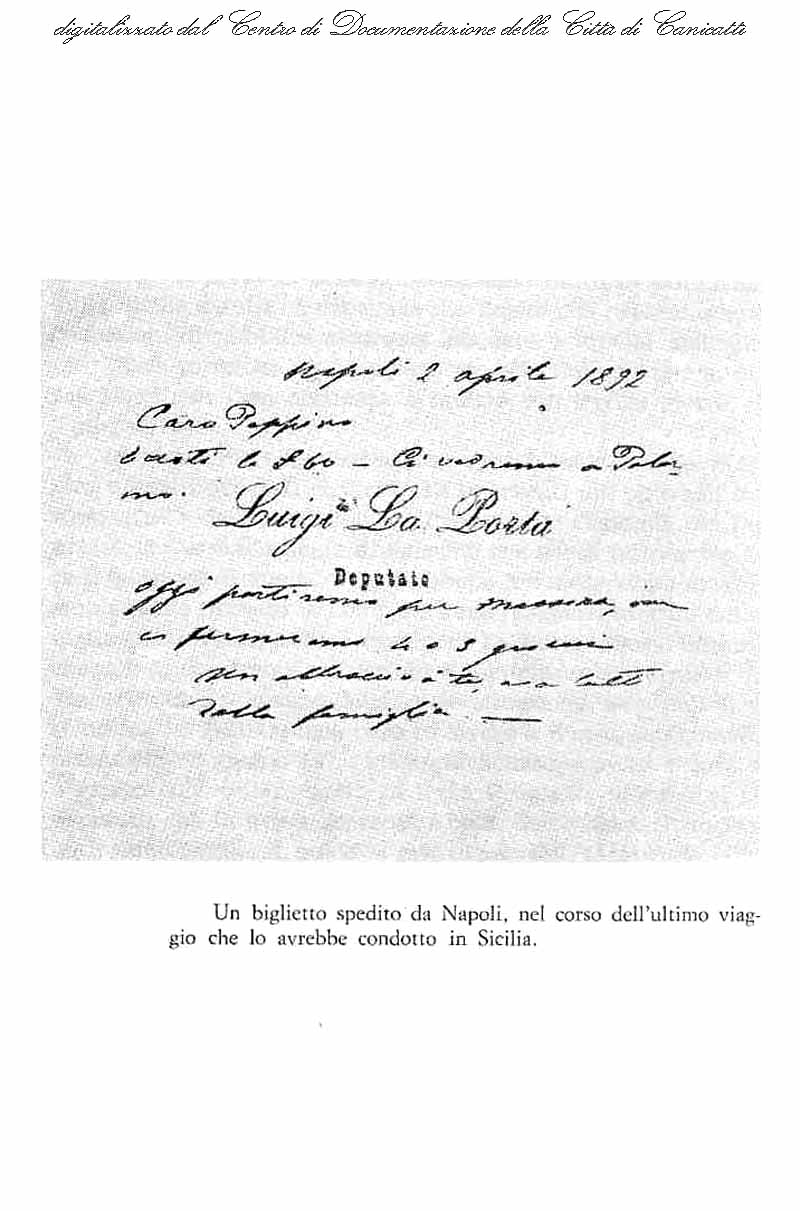 digitalizzato dal Centro di Documentazione della Città di Canicattì
Napoli 2 aprile 1892
Caro Peppino
le £ 60 — Ci vedremo a Paler-
mo.
Luigi La Porta
Deputato
oggi partiremo per Messina, ove
ci fermeremo 2 o 3 giorni
Un abbraccio a te, e a tutti
della famiglia. —
Un biglietto spedito da Napoli, nel corso dell'ultimo viag-
gio che lo avrebbe condotto in Sicilia.